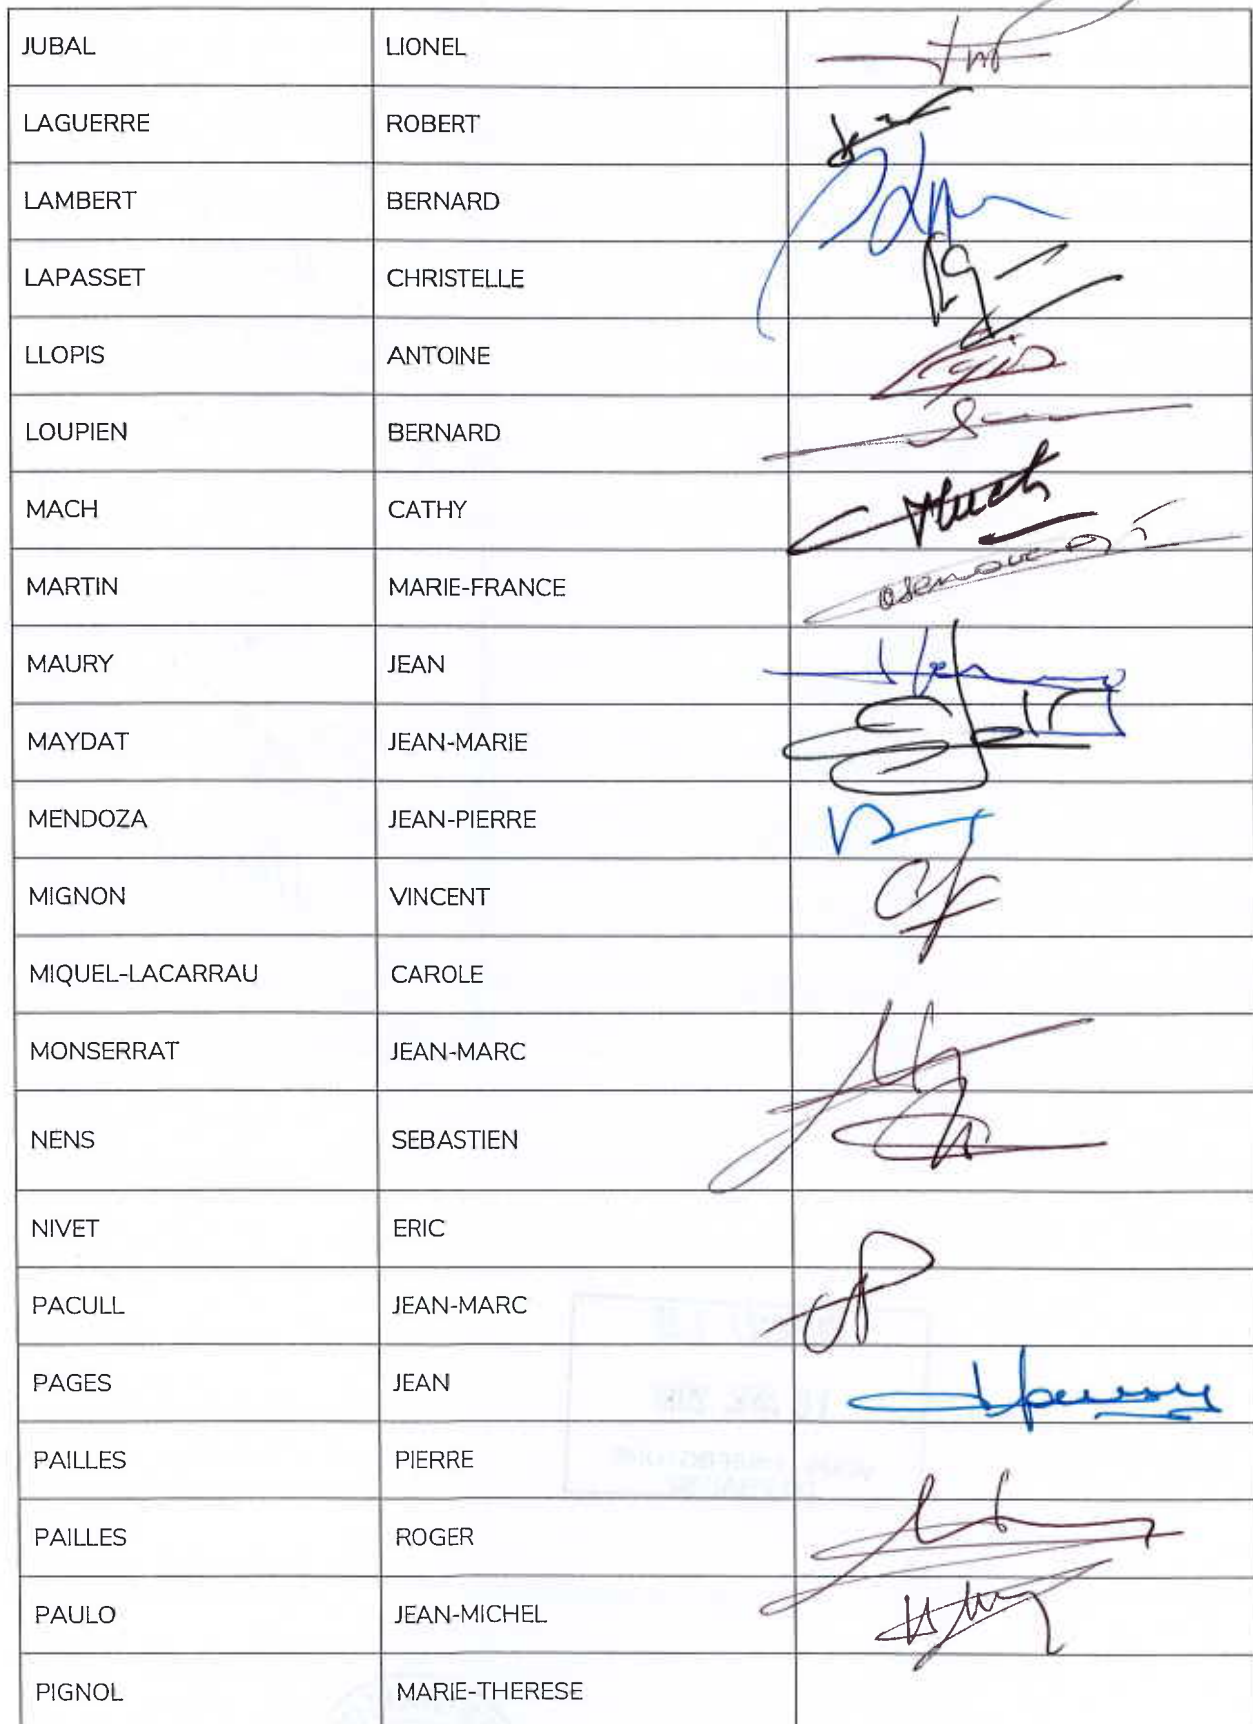 JUBAL LIONEL
LAGUERRE ROBERT
LAMBERT BERNARD
LAPASSET CHRISTELLE
LLOPIS ANTOINE
LOUPIEN BERNARD
MACH CATHY Mach
MARTIN MARIE-FRANCE
MAURY JEAN
MAYDAT JEAN-MARIE
MENDOZA JEAN-PIERRE
MIGNON VINCENT
MIQUEL-LACARRAU CAROLE
MONSERRAT JEAN-MARC
NENS SEBASTIEN
NIVET ERIC
PACULL JEAN-MARC
PAGES JEAN
PAILLES PIERRE
PAILLES ROGER
PAULO JEAN-MICHEL
PIGNOL MARIE-THERESE